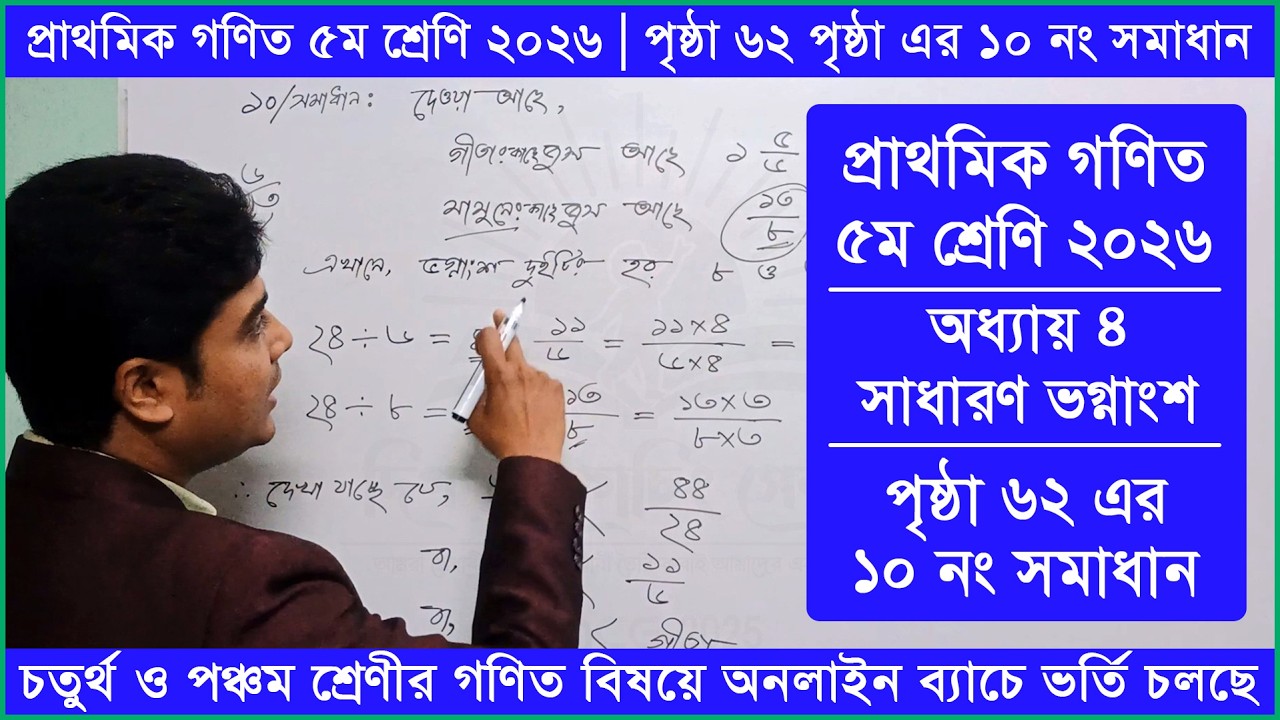 প্রাথমিক গণিত ৫ম শ্রেণি ২০২৬ | পৃষ্ঠা ৬২ পৃষ্ঠা এর ১০ নং সমাধান
১০/সমাধান: দেওয়া আছে,
আছে ১ ৫/৬
আছে ১৩/৮
এখানে, ভগ্নাংশ দুইটির হর ৮ ও
২৪ ÷ ৬ = ১১/৬ = ১১×৪/৬×৪ =
২৪ ÷ ৮ = ১৩/৮ = ১৩×৩/৮×৩
∴ দেখা যাচ্ছে যে, < ৪৪/২৪
বা, < ১১/৬
বা, < গীতা
প্রাথমিক গণিত
৫ম শ্রেণি ২০২৬
অধ্যায় ৪
সাধারণ ভগ্নাংশ
পৃষ্ঠা ৬২ এর
১০ নং সমাধান
চতুর্থ ও পঞ্চম শ্রেণীর গণিত বিষয়ে অনলাইন ব্যাচে ভর্তি চলছে